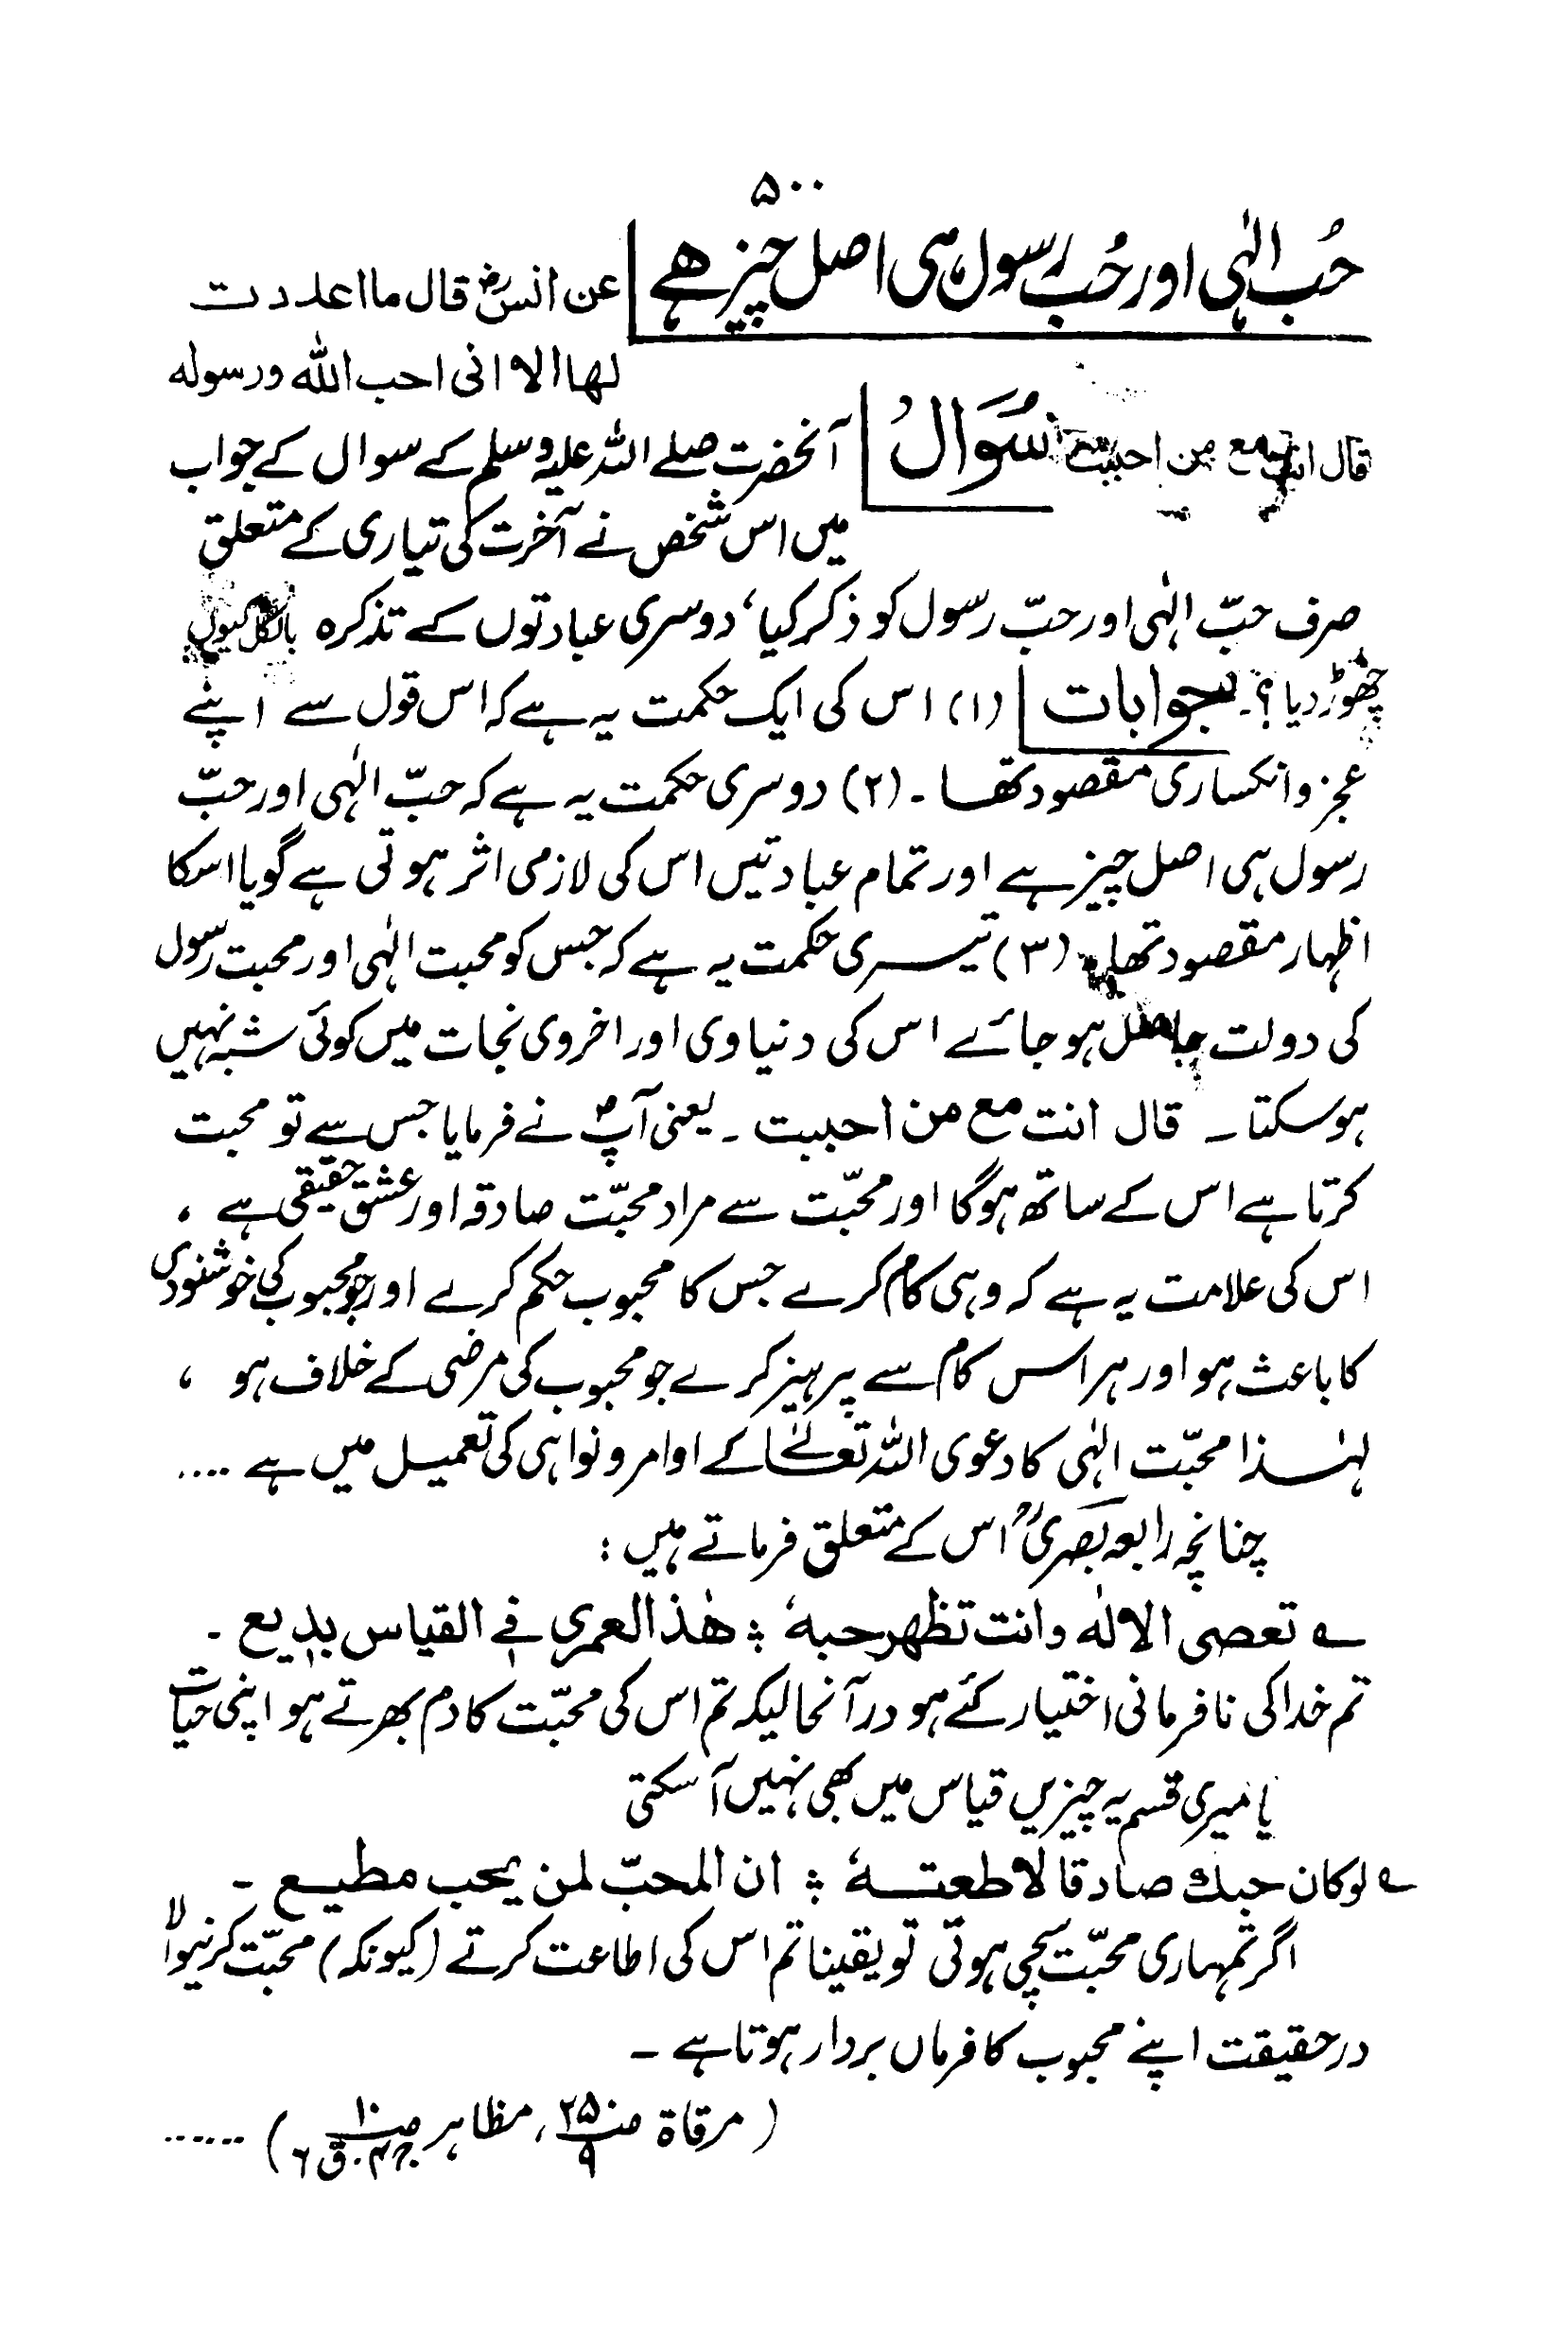 ۵۰۰
حُب الٰہی اور حُب رسول ہی اصل چیز ھے عن انسؓ قال ما اعددت
لھا الا انی احب اللّٰہ ورسولہ
قال انت مع من احببت سُوَالُ آنحضرت صلے اللہ علیہ وسلم کے سوال کے جواب
میں اس شخص نے آخرت کی تیاری کے متعلق
صرف حبّ الٰہی اور حبّ رسول کو ذکر کیا، دوسری عبادتوں کے تذکرہ بالکل کیوں
چھوڑ دیا؟۔ جوابات (۱) اس کی ایک حکمت یہ ہے کہ اس قول سے اپنے
عجز و انکساری مقصود تھا ۔ (۲) دوسری حکمت یہ ہے کہ حبّ الٰہی اور حبّ
رسول ہی اصل چیز ہے اور تمام عبادتیں اس کی لازمی اثر ہوتی ہے گویا اسکا
اظہار مقصود تھا۔ (۳) تیسری حکمت یہ ہے کہ جس کو محبت الٰہی اور محبت رسول
کی دولت حاصل ہو جائے اس کی دنیاوی اور اخروی نجات میں کوئی شبہ نہیں
ہو سکتا ۔ قال انت مع من احببت ۔ یعنی آپؐ نے فرمایا جس سے تو محبت
کرتا ہے اس کے ساتھ ہوگا اور محبّت سے مراد محبّت صادقہ اور عشق حقیقی ہے ،
اس کی علامت یہ ہے کہ وہی کام کرے جس کا محبوب حکم کرے اور جو محبوب کی خوشنودی
کا باعث ہو اور ہر اس کام سے پرہیز کرے جو محبوب کی مرضی کے خلاف ہو ،
لہٰذا محبّت الٰہی کا دعوی اللہ تعالےٰ کے اوامر و نواہی کی تعمیل میں ہے ....
چنانچہ رابعہ بصریؒ اس کے متعلق فرماتے ہیں :
؎ تعصی الالٰہ وانت تظھر حبہٗ ؛ ھٰذا لعمری فی القیاس بدیع ۔
تم خدا کی نافرمانی اختیار کئے ہو درآنحالیکہ تم اس کی محبّت کا دم بھرتے ہو اپنی حیات
یا میری قسم یہ چیزیں قیاس میں بھی نہیں آ سکتی
؎ لوکان حبك صادقا لاطعتہٗ ؛ ان المحبّ لمن یحب مطیع ۔
اگر تمہاری محبّت سچی ہوتی تو یقینا تم اس کی اطاعت کرتے (کیونکہ) محبّت کرنیوالا
درحقیقت اپنے محبوب کا فرماں بردار ہوتا ہے ۔
( مرقاة صـ ۲۵/۹ ، مظاہر صـ ۱۰ ج۴ . ق ۶ ) ......